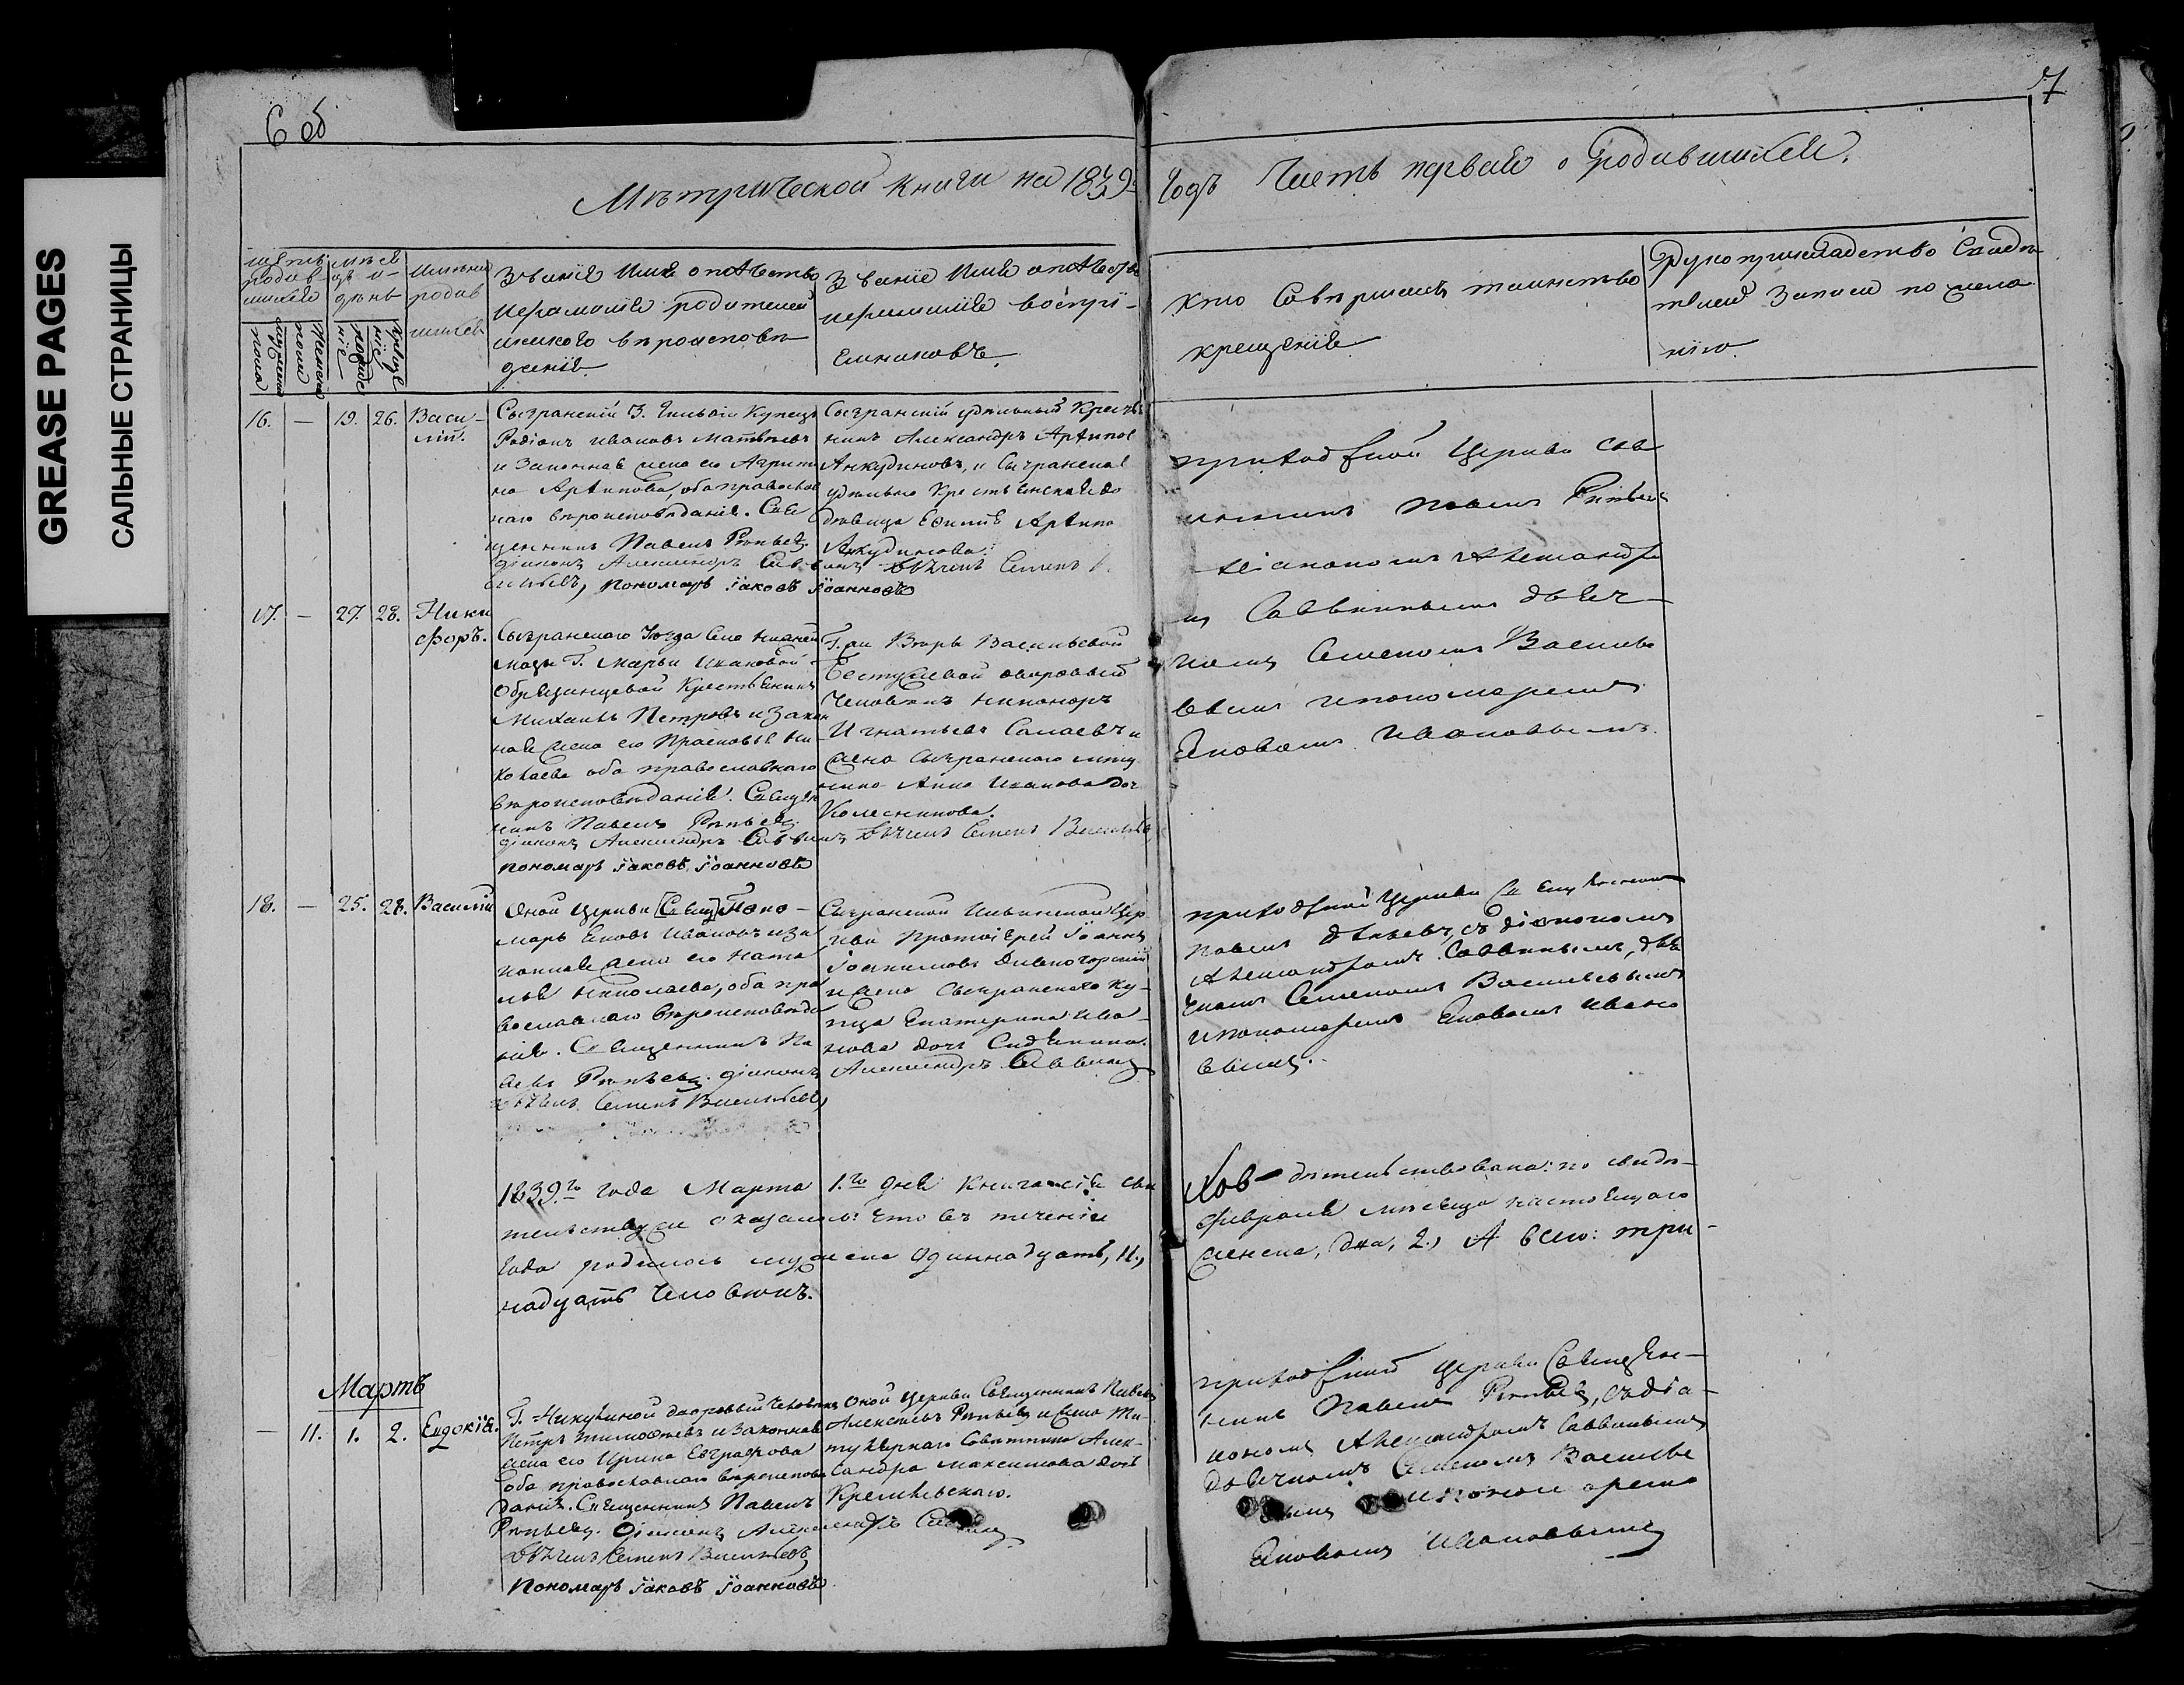 GREASE PAGES
САЛЬНЫЕ СТРАНИЦЫ
6 об
7
Мѣтрической книги на 1839
годъ Часть первая о Родившихся.
мѣся
родив
шихся
день
имена
родив
шихся
Званіе Имя отчество
и фамиліе родителей
и какого вѣроисповѣ
данія
Званіе Имя отчество
и фамиліе воспрі-
емниковъ.
кто Совѣршалъ таинство
крещеніе
Рукоприкладство Свидѣ
телей записи по жела
нію.
16. — 19. 26. Васи-
лій.
Сызранскій 3. Гильдіи Купецъ
Родіонъ Ивановъ Матвѣевъ
и Законная жена его Агрипи
на Архипова, оба православ
наго вѣроисповѣданія. Свя
щенникъ Павелъ
діаконъ Александръ Саввинъ
пономарь Іаковъ Іоанновъ
Сызранскій удѣльный Крестья
нинъ Александръ Архипов
Анкудиновъ, и Сызранская
удѣльная Крестьянская
дѣвица Архипо
Анкудинова.
дьячекъ Семенъ
приходской Церкви Свя
щенникъ Павелъ
діакономъ Александро
мъ Саввинымъ дьяч-
комъ Семеномъ Василье
вымъ и пономаремъ
Яковомъ Ивановымъ.
17. — 27. 28. Ники
форъ.
Сызранскаго Уѣзда Села
Г. Марьи Ивановой
Образцовой Крестьянинъ
Михаилъ Петровъ и Закон
ная жена его Прасковья Ни
колаева оба православнаго
вѣроисповѣданія. Священ
никъ Павелъ
діаконъ Александръ Саввинъ дьячекъ Семенъ Васильевъ
пономарь Іаковъ Іоанновъ
Г. Варвары Васильевой
дворовый
Человѣкъ Никаноръ
Игнатьевъ и
жена Сызранскаго мѣща
нина Анна Иванова доч
Колесникова.
18. — 25. 28. Василій
Оной Церкви [Свящ] Поно-
марь Яковъ Ивановъ и за
конная жена его Ната
лья Николаева, оба пра
вославнаго вѣроисповѣда
нія. Священникъ Па
велъ діаконъ
дьячекъ Семенъ Васильевъ,
Сызранской Ильинской Цер
кви Протоіерей Іоаннъ
Іоакимовъ Дивногорскій
и жена Сызранскаго Ку-
пца Екатерина Ива-
нова дочь Сидякина.
Александръ Саввинъ
приходской Церкви Священникъ
Павелъ съ діакономъ
Александромъ Саввинымъ, дья
чкомъ Семеномъ Васильевымъ
и пономаремъ Яковомъ Ивано
вымъ.
1839.го года Марта 1.го дня книга сія сви
дѣтельствована: по свидѣ-
тельству же оказалось: что въ теченіи
февраля мѣсяца настоящаго
года родилось мужеска одиннадцать, 11.,
женска, два, 2., А всего: три-
надцать человѣкъ.
Мартъ
— 11. 1. 2. Евдокія.
Г. Никулиной дворовый человѣкъ
Петръ Тимофеевъ и Законная
жена его Ирина Евграфова
оба православнаго вѣроисповѣ
данія. Священникъ Павелъ
діаконъ Александръ Саввинъ
дьячекъ Семенъ Васильевъ
пономарь Іаковъ Іоанновъ
Оной Церкви Священникъ Павелъ
Алексѣевъ и жена Ти
тулярнаго Совѣтника Алек-
сандра Максимова дочь
Кремлевскаго.
приходской Церкви Священ-
никъ Павелъ съ діа-
кономъ Александромъ Саввинымъ
дьячкомъ Семеномъ Василье
вымъ и пономаремъ
Яковомъ Ивановымъ